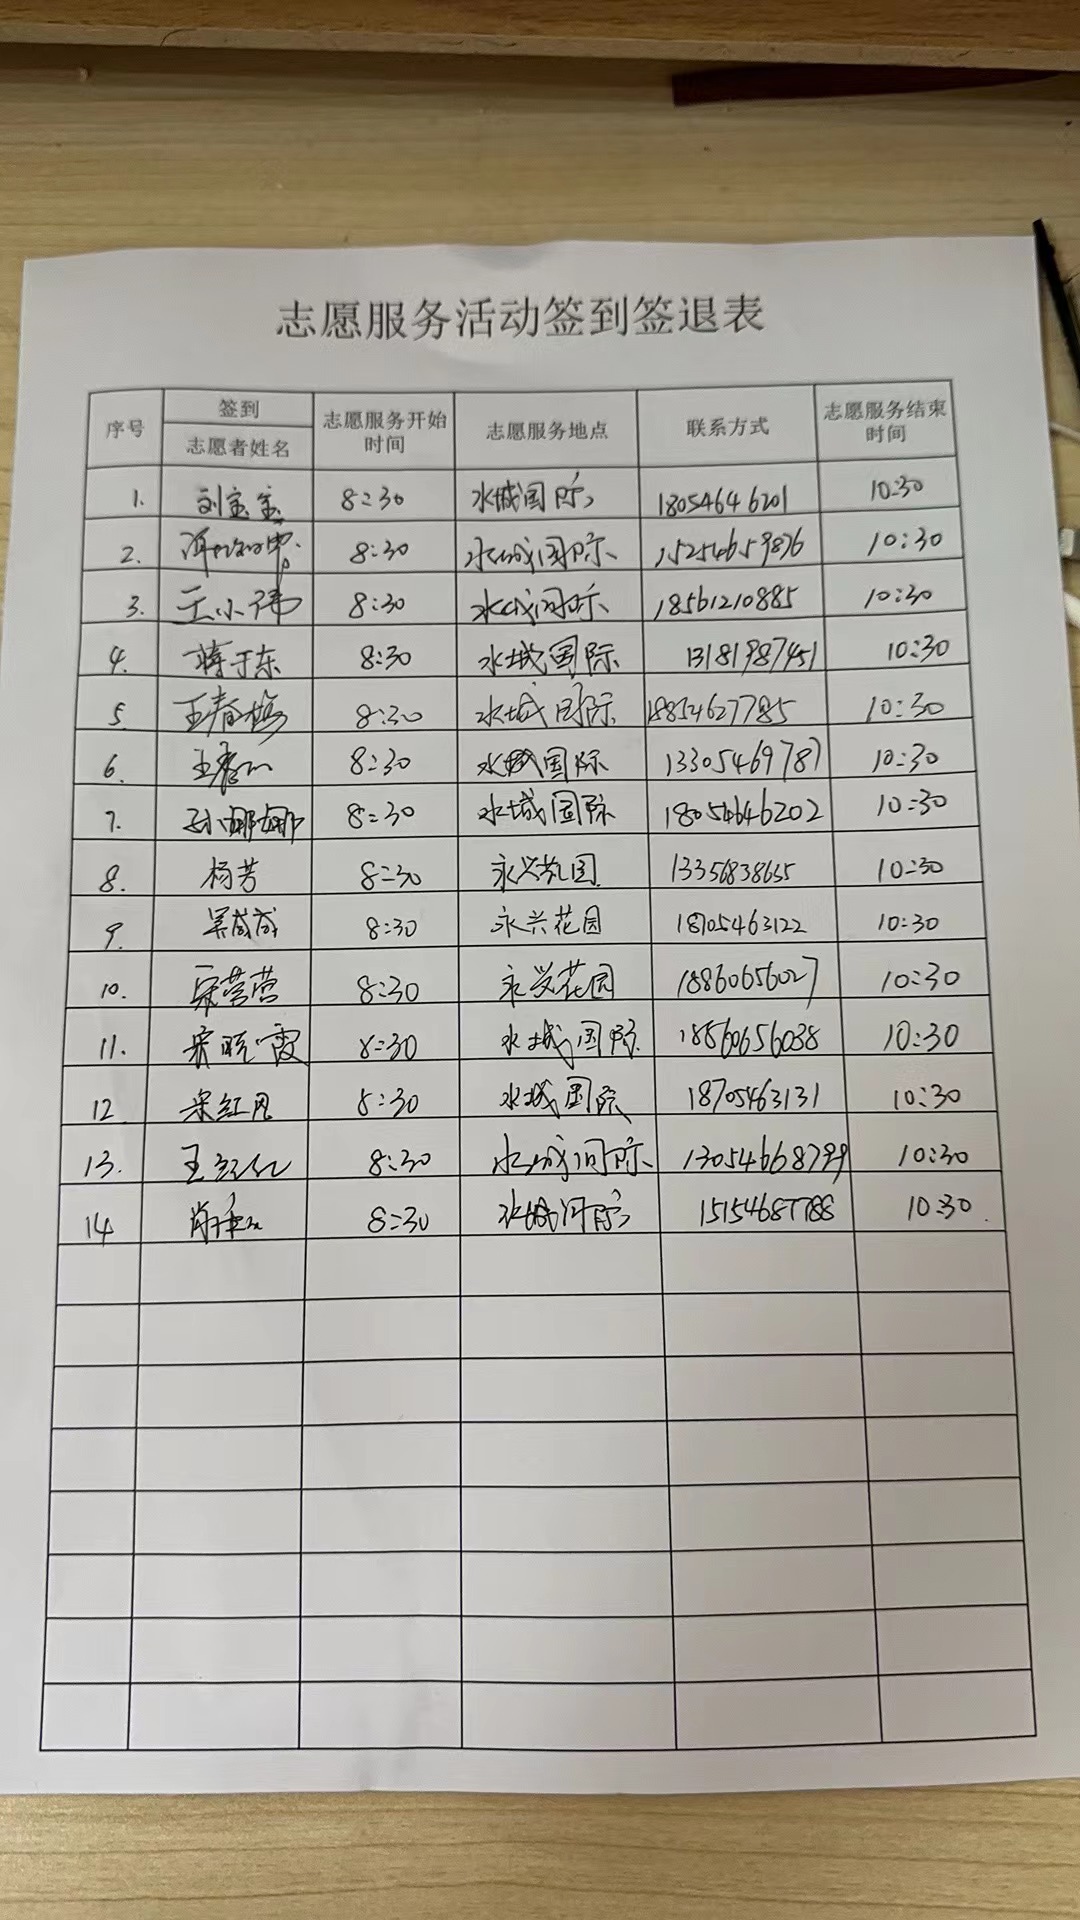 志愿服务活动签到签退表
序号 签到 志愿者姓名 志愿服务开始时间 志愿服务地点 联系方式 志愿服务结束时间
1. 刘宝宝 8:30 水城国际 18054646201 10:30
2. 8:30 水城国际 15254659876 10:30
3. 王小伟 8:30 水城国际 18561210885 10:30
4. 蒋于东 8:30 水城国际 13181987451 10:30
5. 王春梅 8:30 水城国际 18854627785 10:30
6. 8:30 水城国际 13305469787 10:30
7. 孙娜娜 8:30 水城国际 18054646202 10:30
8. 杨芳 8:30 永兴花园 13356838655 10:30
9. 吴成成 8:30 永兴花园 18705463122 10:30
10. 宋营营 8:30 永兴花园 18860656027 10:30
11. 宋晓霞 8:30 水城国际 18860656038 10:30
12 宋红凤 8:30 水城国际 18705463131 10:30
13. 王红仁 8:30 水城国际 13054668799 10:30
14 8:30 水城国际 15154687788 10:30